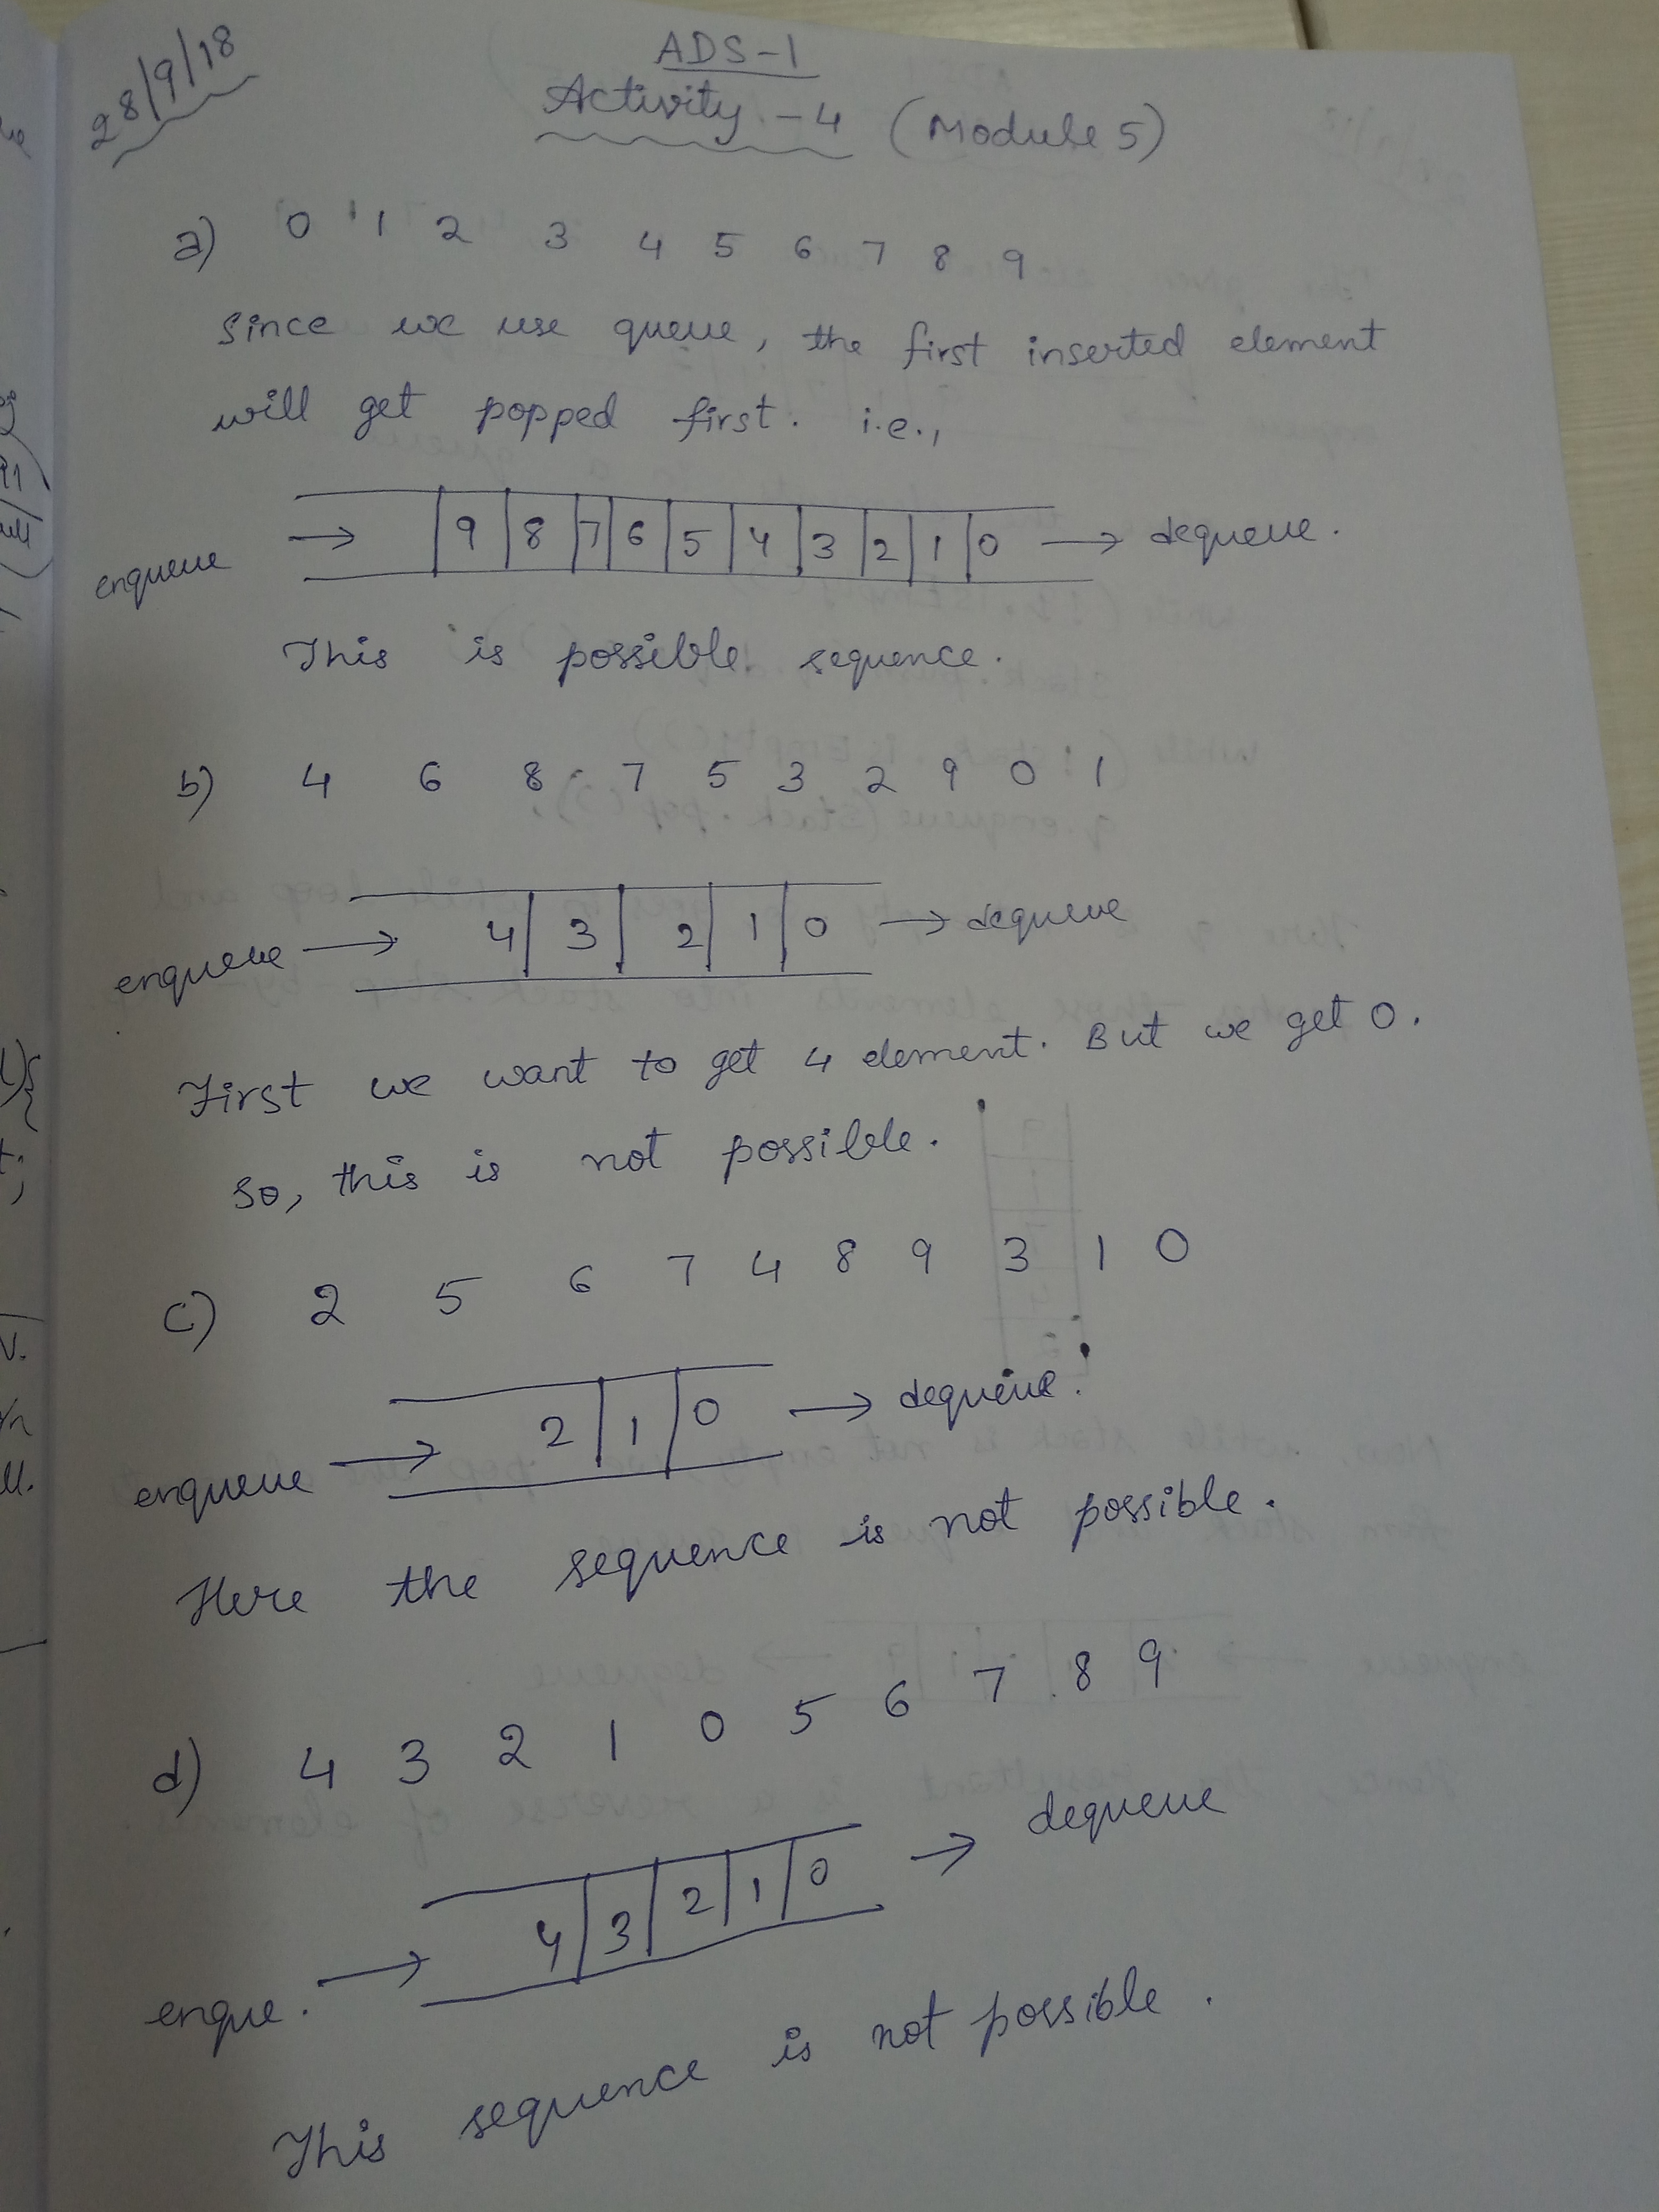 28/9/18
ADS-1
Activity-4 (Module 5)
a) 0 1 2 3 4 5 6 7 8 9
Since we use queue, the first inserted element
will get popped first. i.e.,
enqueue → 9 8 7 6 5 4 3 2 1 0 → dequeue.
This is possible sequence.
b) 4 6 8 7 5 3 2 9 0 1
enqueue → 4 3 2 1 0 → dequeue
First we want to get 4 element. But we get 0.
So, this is not possible.
c) 2 5 6 7 4 8 9 3 1 0
enqueue → 2 1 0 → dequeue.
Here the sequence is not possible.
d) 4 3 2 1 0 5 6 7 8 9
enque. → 4 3 2 1 0 → dequeue
This sequence is not possible.